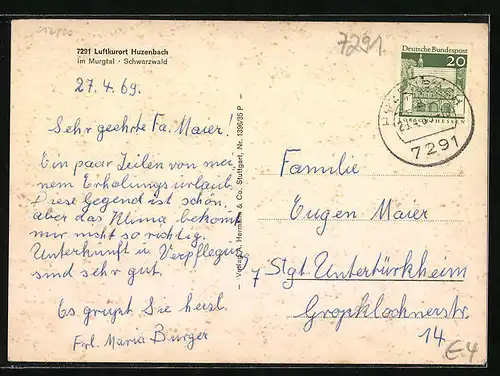 12/00
7291
7291 Luftkurort Huzenbach
im Murgtal · Schwarzwald
Deutsche Bundespost
20
LORSCH/HESSEN
7291
27.4.69.
Sehr geehrte Fa. Maier!
Ein paar Zeilen von mei-
nem Erholungsurlaub.
Diese Gegend ist schön,
aber das Klima bekomt
mir nicht so richtig.
Unterkunft u. Verpflegung
sind sehr gut.
Es grüßt Sie herzl.
Frl. Maria Burger
– Verlag A. Hermann & Co. Stuttgart, Nr. 1390/35 P –
Familie
Eugen Maier
7 Stgt. Untertürkheim
Großglocknerstr.
14
E4